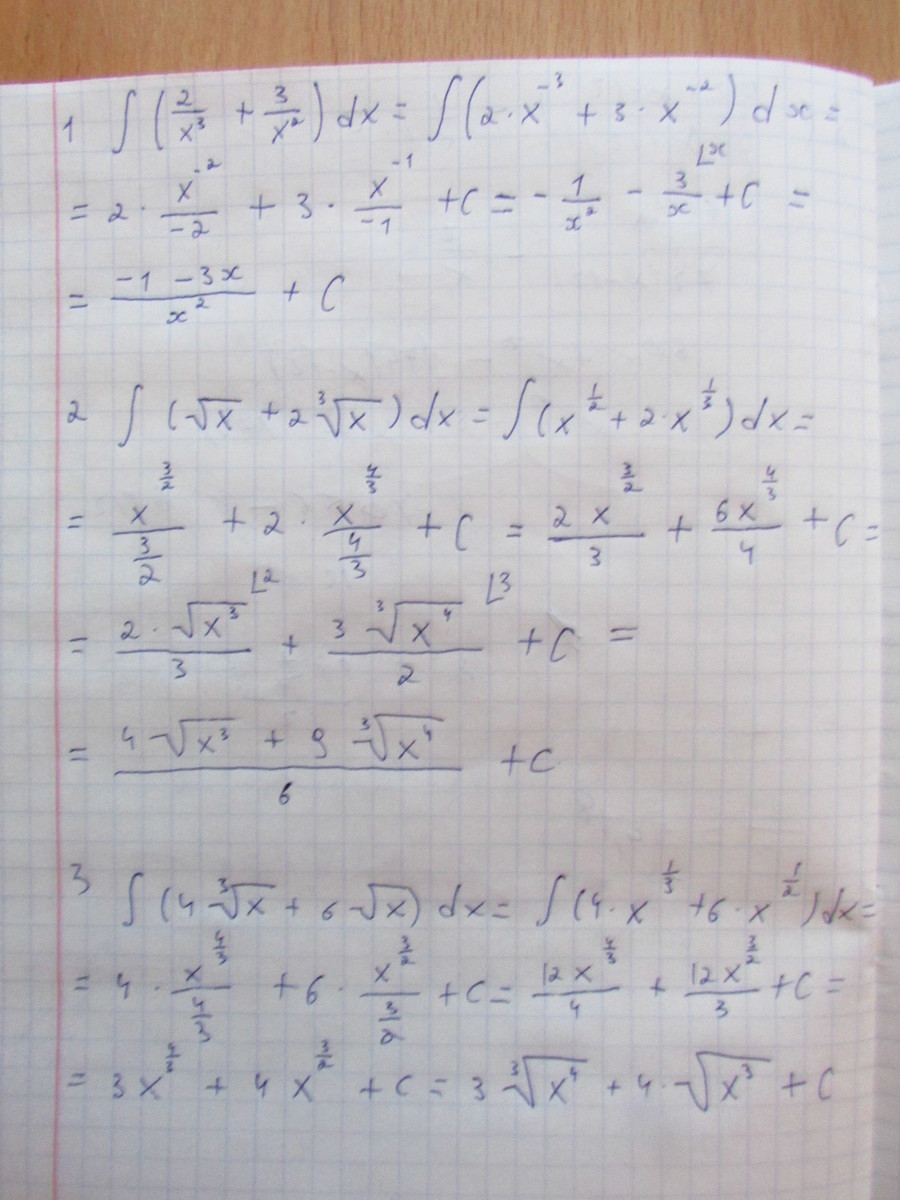 1 ∫(2/x³ + 3/x²) dx = ∫(2·x⁻³ + 3·x⁻²) dx =
= 2·x⁻²/-2 + 3·x⁻¹/-1 + C = -1/x² - 3/x ⌊x + C =
= (-1 -3x)/x² + C
2 ∫(√x + 2∛x) dx = ∫(x^(1/2) + 2·x^(1/3)) dx =
= x^(3/2)/(3/2) + 2·x^(4/3)/(4/3) + C = 2x^(3/2)/3 + 6x^(4/3)/4 + C =
= 2·√x³/3 ⌊2 + 3∛x⁴/2 ⌊3 + C =
= (4√x³ + 9∛x⁴)/6 + C
3 ∫(4∛x + 6√x) dx = ∫(4·x^(1/3) + 6·x^(1/2)) dx =
= 4·x^(4/3)/(4/3) + 6·x^(3/2)/(3/2) + C = 12x^(4/3)/4 + 12x^(3/2)/3 + C =
= 3x^(4/3) + 4x^(3/2) + C = 3∛x⁴ + 4·√x³ + C